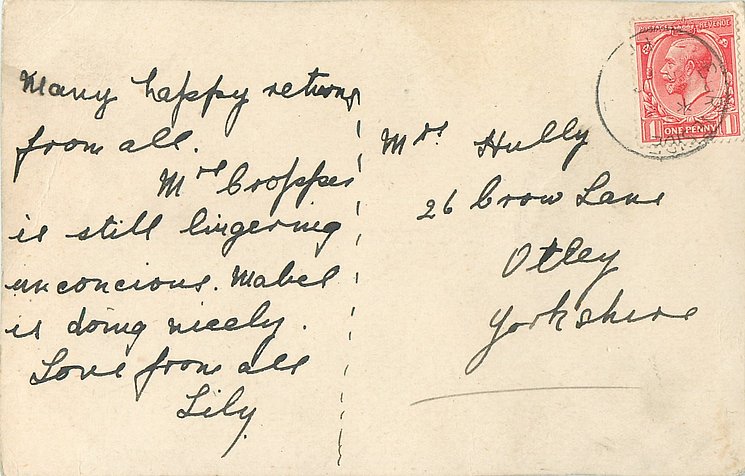 Many happy returns
from all.
Mrs Cropper
is still lingering
unconcious. Mabel
is doing nicely.
Love from all
Lily.
Mrs Hully
26 Crow Lane
Otley
Yorkshire
POSTAGE REVENUE
1 ONE PENNY 1